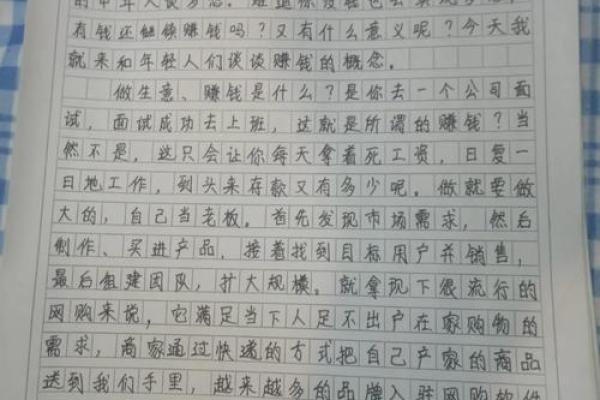 的中年人谈梦想。难道你没钱也去实现梦想，
有钱还继续赚钱吗？又有什么意义呢？今天我
就来和年轻人们谈谈赚钱的概念。
做生意、赚钱是什么？是你去一个公司面
试，面试成功去上班，这就是所谓的赚钱？当
然不是，这只会让你每天拿着死工资，日复一
日地工作，到头来存款又有多少呢。做就要做
大的，自己当老板。首先发现市场需求，然后
制作、买进产品，接着找到目标用户并销售，
最后组建团队，扩大规模。就拿现下很流行的
网购来说，它满足当下人足不出户在家购物的
需求，商家通过快递的方式把自己产家的商品
送到我们手里，越来越多的品牌入驻网购软件